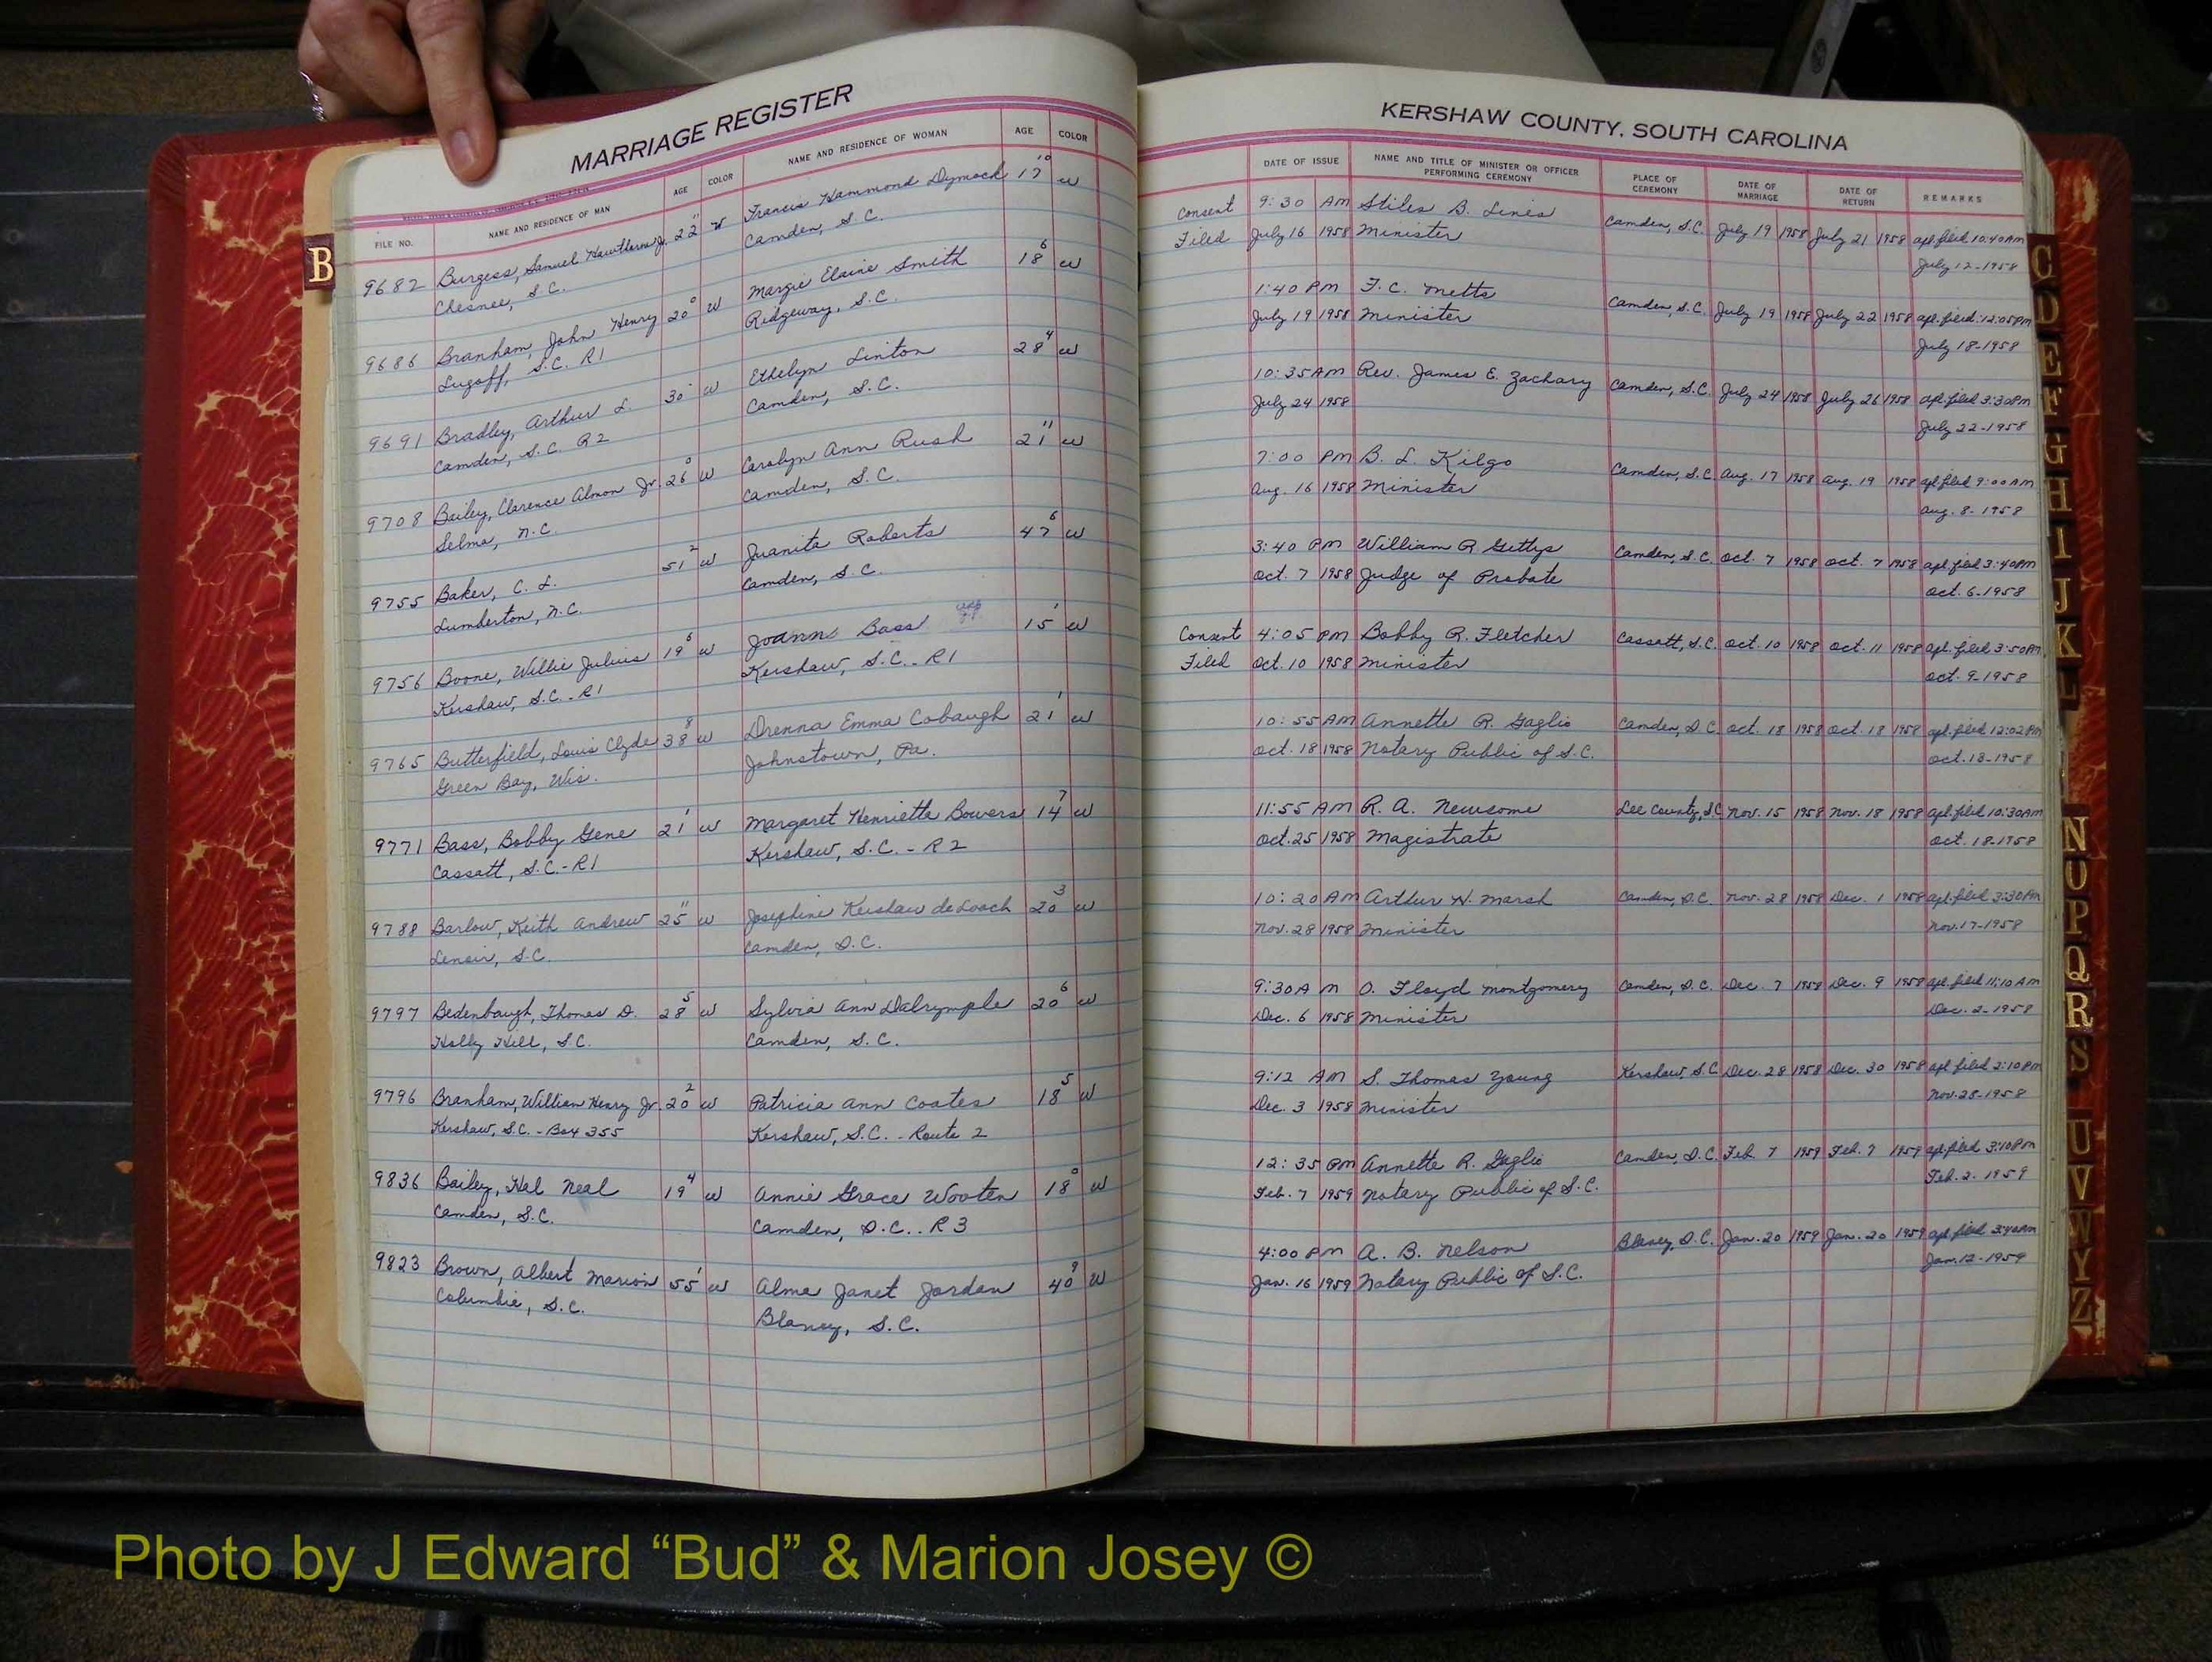 MARRIAGE REGISTER
FILE NO. NAME AND RESIDENCE OF MAN AGE COLOR NAME AND RESIDENCE OF WOMAN AGE COLOR
B
9682 Burgess, Samuel Hawthorne Jr. 22 11 W Francis Hammond Dymock 17 10 W
Chesnee, S.C. Camden, S.C.
9686 Branham, John Henry 20 0 W Margie Elaine Smith 18 6 W
Lugoff, S.C. R1 Ridgeway, S.C.
9691 Bradley, Arthur L. 30 W Ethelyn Linton 28 4 W
Camden, S.C. R2 Camden, S.C.
9708 Bailey, Clarence Almon Jr. 26 0 W Carolyn Ann Rush 21 11 W
Selma, N.C. Camden, S.C.
9755 Baker, C. L. 51 2 W Juanita Roberts 47 6 W
Lumberton, N.C. Camden, S.C.
9756 Boone, Willie Julius 19 6 W Joann Bass 15 1 W
Kershaw, S.C. - R1 Kershaw, S.C. - R1
9765 Butterfield, Louis Clyde 38 8 W Drenna Emma Cobaugh 21 1 W
Green Bay, Wis. Johnstown, Pa.
9771 Bass, Bobby Gene 21 1 W Margaret Henrietta Bowers 14 7 W
Cassatt, S.C. - R1 Kershaw, S.C. - R2
9788 Barlow, Keith Andrew 25 11 W Josephine Kershaw deLoach 20 3 W
Lenoir, S.C. Camden, S.C.
9797 Bedenbaugh, Thomas D. 28 5 W Sylvia Ann Dalrymple 20 6 W
Holly Hill, S.C. Camden, S.C.
9796 Branham, William Henry Jr. 20 2 W Patricia Ann Coates 18 5 W
Kershaw, S.C. - Box 355 Kershaw, S.C. - Route 2
9836 Bailey, Hal Neal 19 4 W Annie Grace Wooten 18 0 W
Camden, S.C. Camden, S.C. - R3
9823 Brown, Albert Marion 55 1 W Alma Janet Jordan 40 9 W
Columbia, S.C. Blaney, S.C.
KERSHAW COUNTY, SOUTH CAROLINA
DATE OF ISSUE NAME AND TITLE OF MINISTER OR OFFICER PERFORMING CEREMONY PLACE OF CEREMONY DATE OF MARRIAGE DATE OF RETURN REMARKS
Consent 9:30 AM Stiles B. Lines Camden, S.C. July 19 1958 July 21 1958 apl. filed 10:40 AM
Filed July 16 1958 Minister July 12-1958
1:40 PM F. C. Metts Camden, S.C. July 19 1958 July 22 1958 apl. filed 12:05 PM
July 19 1958 Minister July 18-1958
10:35 AM Rev. James E. Zachary Camden, S.C. July 24 1958 July 26 1958 apl. filed 3:30 PM
July 24 1958 July 22-1958
7:00 PM B. L. Kilgo Camden, S.C. Aug. 17 1958 Aug. 19 1958 apl. filed 9:00 AM
Aug. 16 1958 Minister Aug. 8-1958
3:40 PM William R. Gettys Camden, S.C. Oct. 7 1958 Oct. 7 1958 apl. filed 3:40 PM
Oct. 7 1958 Judge of Probate Oct. 6-1958
Consent 4:05 PM Bobby R. Fletcher Cassatt, S.C. Oct. 10 1958 Oct. 11 1958 apl. filed 3:50 PM
Filed Oct. 10 1958 Minister Oct. 9-1958
10:55 AM Annette R. Gaglio Camden, S.C. Oct. 18 1958 Oct. 18 1958 apl. filed 12:02 PM
Oct. 18 1958 Notary Public of S.C. Oct. 13-1958
11:55 AM R. A. Newsome Lee County, S.C. Nov. 15 1958 Nov. 18 1958 apl. filed 10:30 AM
Oct. 25 1958 Magistrate Oct. 18-1958
10:20 AM Arthur W. Marsh Camden, S.C. Nov. 28 1958 Dec. 1 1958 apl. filed 3:30 PM
Nov. 28 1958 Minister Nov. 17-1958
9:30 AM O. Floyd Montgomery Camden, S.C. Dec. 7 1958 Dec. 9 1958 apl. filed 11:10 AM
Dec. 6 1958 Minister Dec. 2-1958
9:12 AM S. Thomas Young Kershaw, S.C. Dec. 28 1958 Dec. 30 1958 apl. filed 2:10 PM
Dec. 3 1958 Minister Nov. 28-1958
12:35 PM Annette R. Gaglio Camden, S.C. Feb. 7 1959 Feb. 7 1959 apl. filed 3:10 PM
Feb. 7 1959 Notary Public of S.C. Feb. 2-1959
4:00 PM A. B. Nelson Blaney, S.C. Jan. 20 1959 Jan. 20 1959 apl. filed AM
Jan. 16 1959 Notary Public of S.C. Jan. 12-1959
C
D
E
F
G
H
I
J
K
L
N
O
P
Q
R
S
U
V
W
Y
Z
Photo by J Edward “Bud” & Marion Josey ©